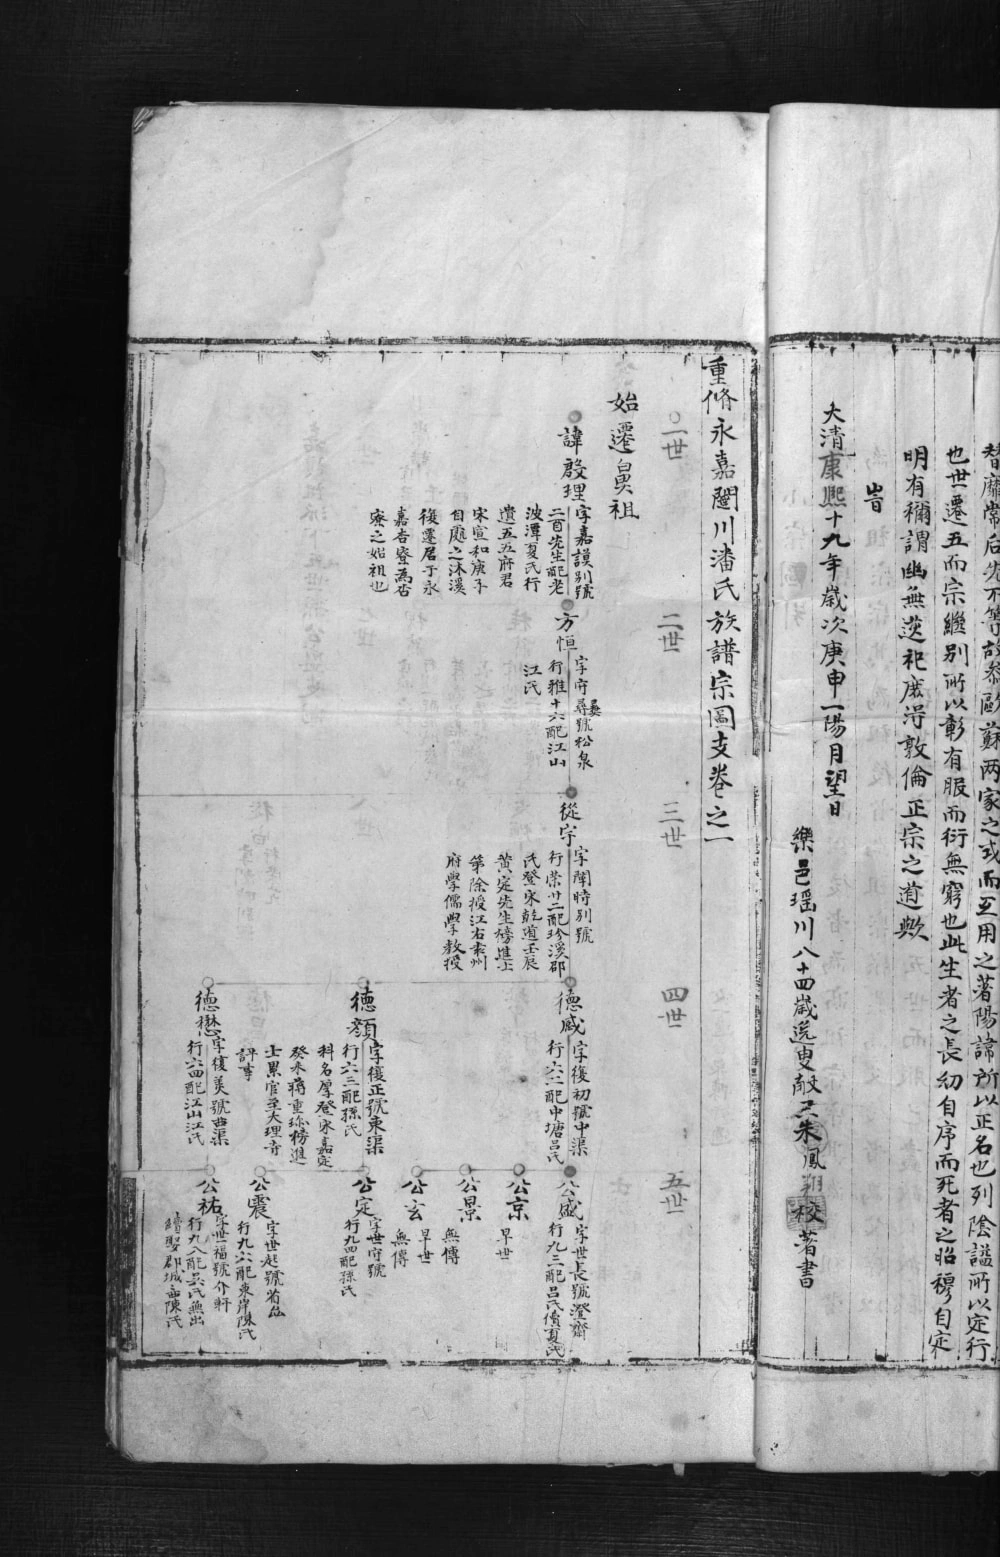 替靡常后先不等故叅歐蘇两家之式而互用之著陽諱所以正名也列陰謚所以定行
也世遷五而宗繼別所以彰有服而衍無窮也此生者之長幼自序而死者之昭穆自定
明有稱謂幽無逆祀庶浔敦倫正宗之道歟
旹
大清康熙十九年歲次庚申一陽月望日
樂邑瑶川八十四歲逸叟朱鳳翔校著書
重脩永嘉闉川潘氏族譜宗圖支卷之一
一世
二世
三世
四世
五世
始遷鼻祖
諱啟理
字嘉謨別號
二酉先生配老
波潭夏氏行
遺五五府君
宋宣和庚子
自處之沐溪
後遷居于永
嘉杏寮為杏
寮之始祖也
方恒
字守彞號松泉
行雅十六配江山
江氏
從宇
字闈時別號
行崇廿二配珍溪郡
氏登宋乾道壬辰
黄定先生榜進士
第除授江右袁州
府學儒學教授
德威
字復初號中渠
行六二配中塘呂氏
德顔
字復正號東渠
行六三配孫氏
科名厚登宋嘉定
癸未蒋重珎榜進
士累官至大理寺
評事
德懋
字復美號西渠
行六四配江山江氏
公盛
字世長號澄齋
行九三配呂氏續夏氏
公京
早世
公景
無傳
公玄
早世
無傳
公定
字世守號
行九四配孫氏
公震
字世起號省菴
行九六配東岸陳氏
公祐
字世福號介軒
行九八配吴氏無出
續娶郡城西陳氏